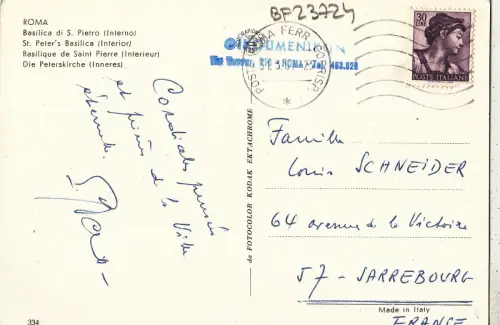 ROMA
Basilica di S. Pietro (Interno)
St. Peter's Basilica (Interior)
Basilique de Saint Pierre (Interieur)
Die Peterskirche (Inneres)
BF23724
30
POSTE ITALIANE
ROMA FERR.
ŒCUMENIKON
ROMA Tel. 463.828
Cordiales pensées
et prières de la Ville
éternelle.
da FOTOCOLOR KODAK EKTACHROME
Famille
Louis SCHNEIDER
64 avenue de la Victoire
57 - SARREBOURG
Made in Italy
FRANCE
334